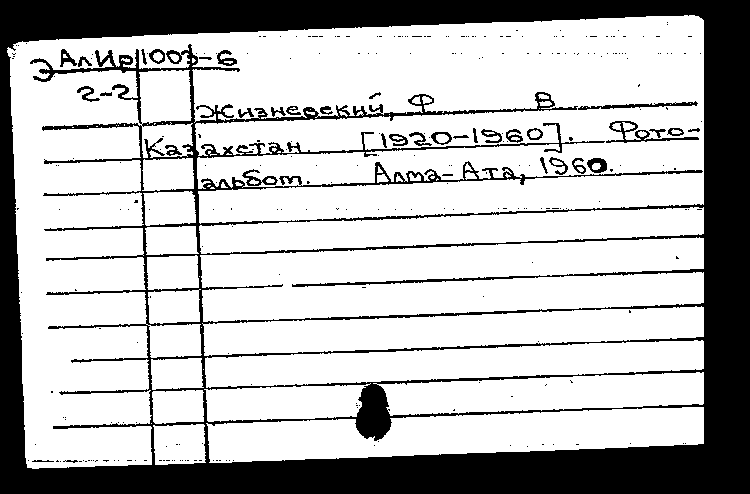 Э АлИр1003-6
2-2
Жизневский, Ф В
Казахстан. [1920-1960]. Фото-
альбом. Алма-Ата, 1960.